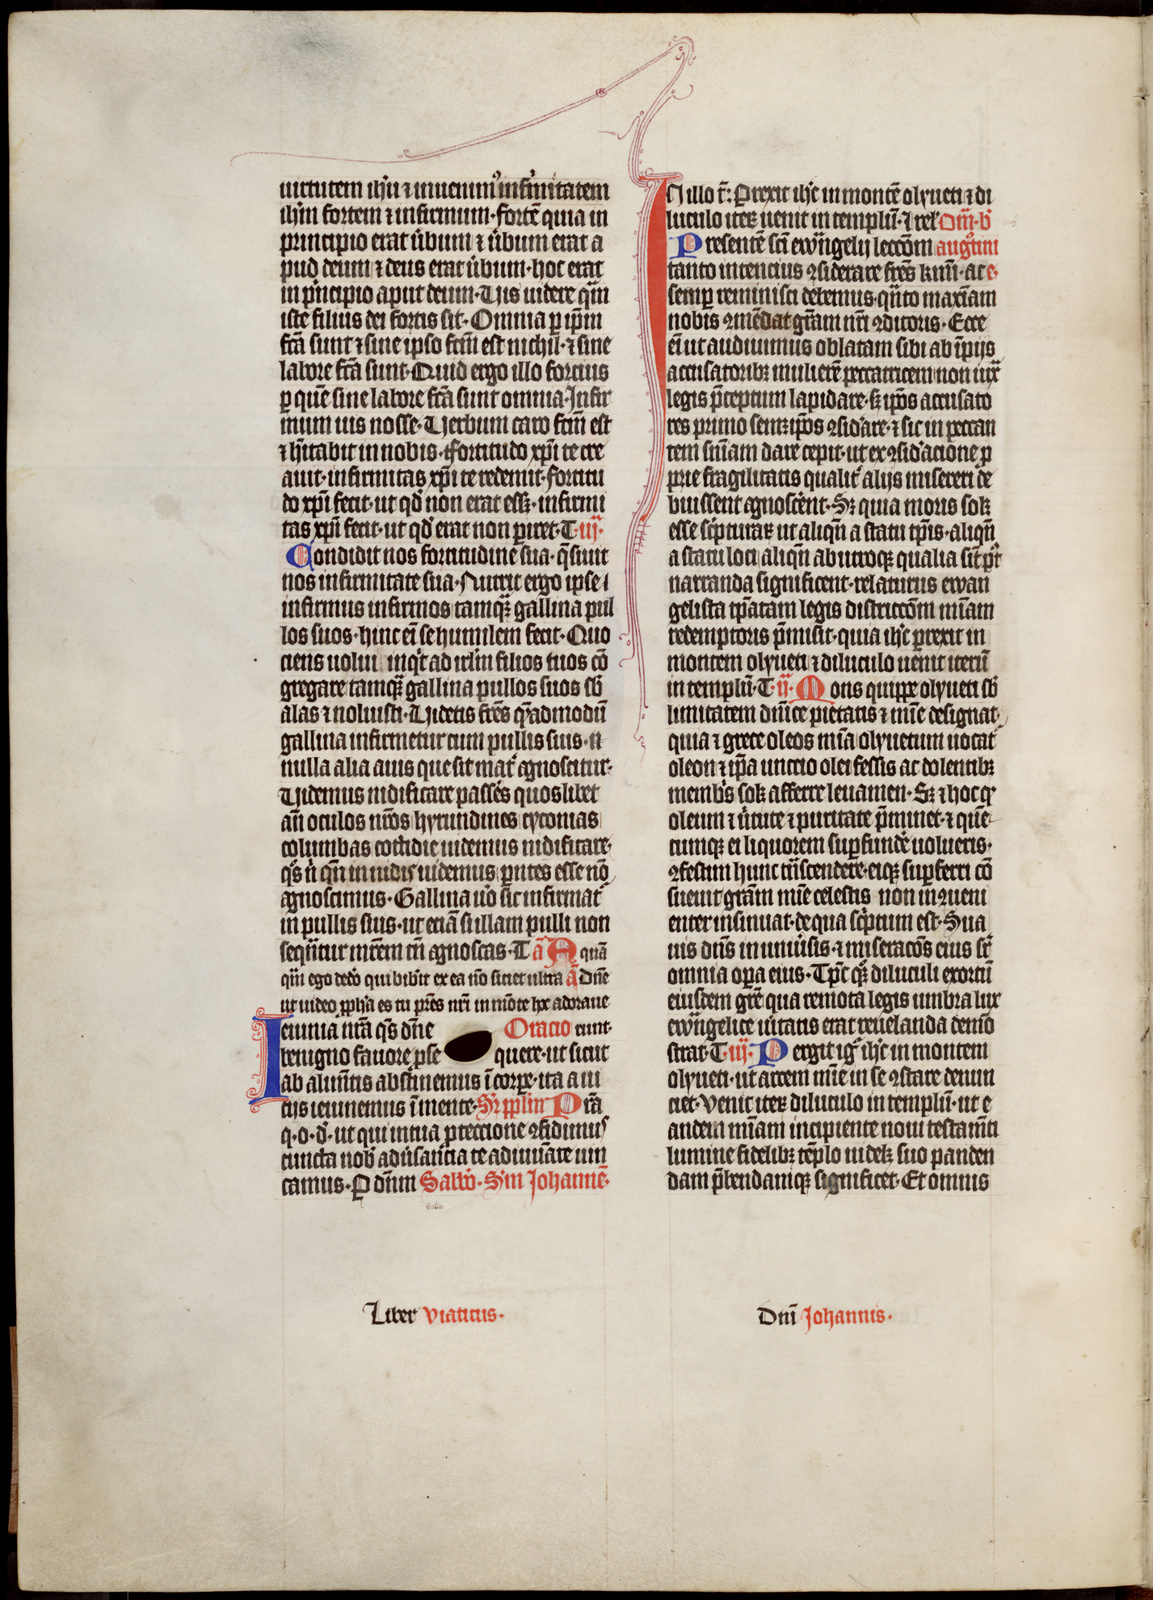 uirtutem ihu ⁊ inuenimꝰ infirmitatem
ihm fortem ⁊ infirmum· fortē quia in
principio erat ůbum ⁊ ůbum erat a
pud deum ⁊ deus erat ůbum· hoc erat
in pͥncipio aput deum· Vis uidere qm̄
iste filius dei fortis sit· Omnia ꝑ ip̄m
fc̄a sunt ⁊ sine ipso fc̄m est nichil· ⁊ sine
labore fc̄a sunt· Quid ergo illo forcius
ꝑ quē sine labore fc̄a sunt omnia· Infir
mum uis nosse· Verbum caro fc̄m est
⁊ hītabit in nobis· ffortitudo xp̄i te cre
auit· infirmitas xp̄i te redemit· fortitu
do xp̄i fecit· ut qd̓ non erat eēt· infirmi
tas xp̄i fecit· ut qd̓ erat non ꝑiret· T· iij·
Condidit nos fortitudine sua· q̄siuit
nos infirmitate sua· Nutrit ergo ipse
infirmus infirmos tamqȝ gallina pul
los suos· huic eī se humilem fecit· Quo
ciens uolui inqͥt ad irl̄m filios tuos cō
gregare tamqȝ gallina pullos suos sb̓
alas ⁊ noluisti· Videtis fr̄es qͣadmodū
gallina infirmetur cum pullis suis·
nulla alia auis que sit mat̓ agnoscitur·
Videmus nidificare passēs quoslibet
an̄ oculos nr̄os hyrundines cyconias
columbas cothidie uidemus nidificare·
qͦs ṅ qn̄ in nidis uidemus ꝑntes esse nō
agnoscimus· Gallina ůo sic infirmat̓
in pullis suis· ut eciā si illam pulli non
seqūtur mr̄em tn̄ agnoscas· T ā Aquā
qm̄ ego ded̓o qui bib̓it ex ea nō siciet ultra ā Dn̄e
ut uideo ꝓph̓a es tu pr̄es nr̄i in mōte hͦc adoraue
Ieiunia nr̄a qͦs dn̄e Oracio runt·
benigno fauore ꝓse quere· ut sicut
ab alimētis abstinemus ī corꝑe· ita a ui
cijs ieiunemus ī mente· Sͬ pplm̄ Prā
q· o· d̓· ut qui in tua ꝓteccione ꝯfidimus
cuncta nob̓ adůsancia te adiuuāte uin
camus· P dn̄m Sabb̓o· Sm̄ Johannē·
Jn illo t̄r· Perrexit ihc̄ in montē olyueti ⁊ di
luculo iteꝝ uenit in templū· ⁊ rel̓ Om̄· b̄
Presentē sc̄i ewͣngelij lecc̄om augͦtini
tanto intencius ꝯsiderare fr̄es kmī· ac e·
semꝑ reminisci debemus· qͣnto maxīam
nobis ꝯmēdat gr̄am nr̄i ꝯditoris· Ecce
eī ut audiuimus oblatam sibi ab īpijs
accusatoribȝ mulierē peccatricem non iux̄
legis p̄ceptum lapidare· sȝ ip̄os accusato
res primo semetip̄os ꝯsid̓are· ⁊ sic in peccan
tem sn̄iam dare cepit· ut ex ꝯsid̓acione ꝓ
prie fragilitatis qualit̓ alijs misereri de
buissent agnosc̓ent· Sȝ quia moris solȝ
esse sc̓pturaꝝ ut aliqn̄ a statu tp̄is· aliqn̄
a statu loci aliqn̄ ab utroqȝ qualia sīt p̓t
narranda significent· relaturus ewan
gelista tp̄atam legis districc̄om mīam
redemptoris p̄misit· quia ihc̄ ꝑrexit in
montem olyueti ⁊ diluculo uenit iterū
in templū· T· ij· Mons quippe olyueti sb̓
limitatem dn̄ice pietatis ⁊ mīe designat·
quia ⁊ grece oleos mīa olyuetum uocat̓
oleon ⁊ ip̄a unctio olei fessis ac dolentibȝ
membͥs solȝ afferre leuamen· Sȝ ⁊ hoc qͥ
oleum ⁊ ůtute ⁊ puritate p̄minet· ⁊ quē
cumqȝ ei liquorem suꝑfund̓e uolueris·
ꝯfestim hunc trn̄scendere· eiqȝ suꝑferri cō
sueuit gr̄am mīe celestis non inꝯueni
enter insinuat· de qua sc̓ptum est· Sua
uis dn̄s in uniůsis· ⁊ miserac̄oēs eius sr̄
omnia oꝑa eius· Tp̄c qͦqȝ diluculi exortū
eiusdem gr̄e qua remota legis umbra lux
ewͣngelice ůitatis erat reuelanda demō
strat· T· iij· Pergit igͬ ihc̄ in montem
olyueti· ut arcem mīe in se ꝯstare denun
ciet· Venit iteꝝ diluculo in templū· ut e
andem mīam incipiente noui testamn̄ti
lumine fidelibȝ tēplo uidelȝ suo panden
dam p̄bendamqȝ significet· Et omnis
Liber viaticus·
Dn̄i Johannis·